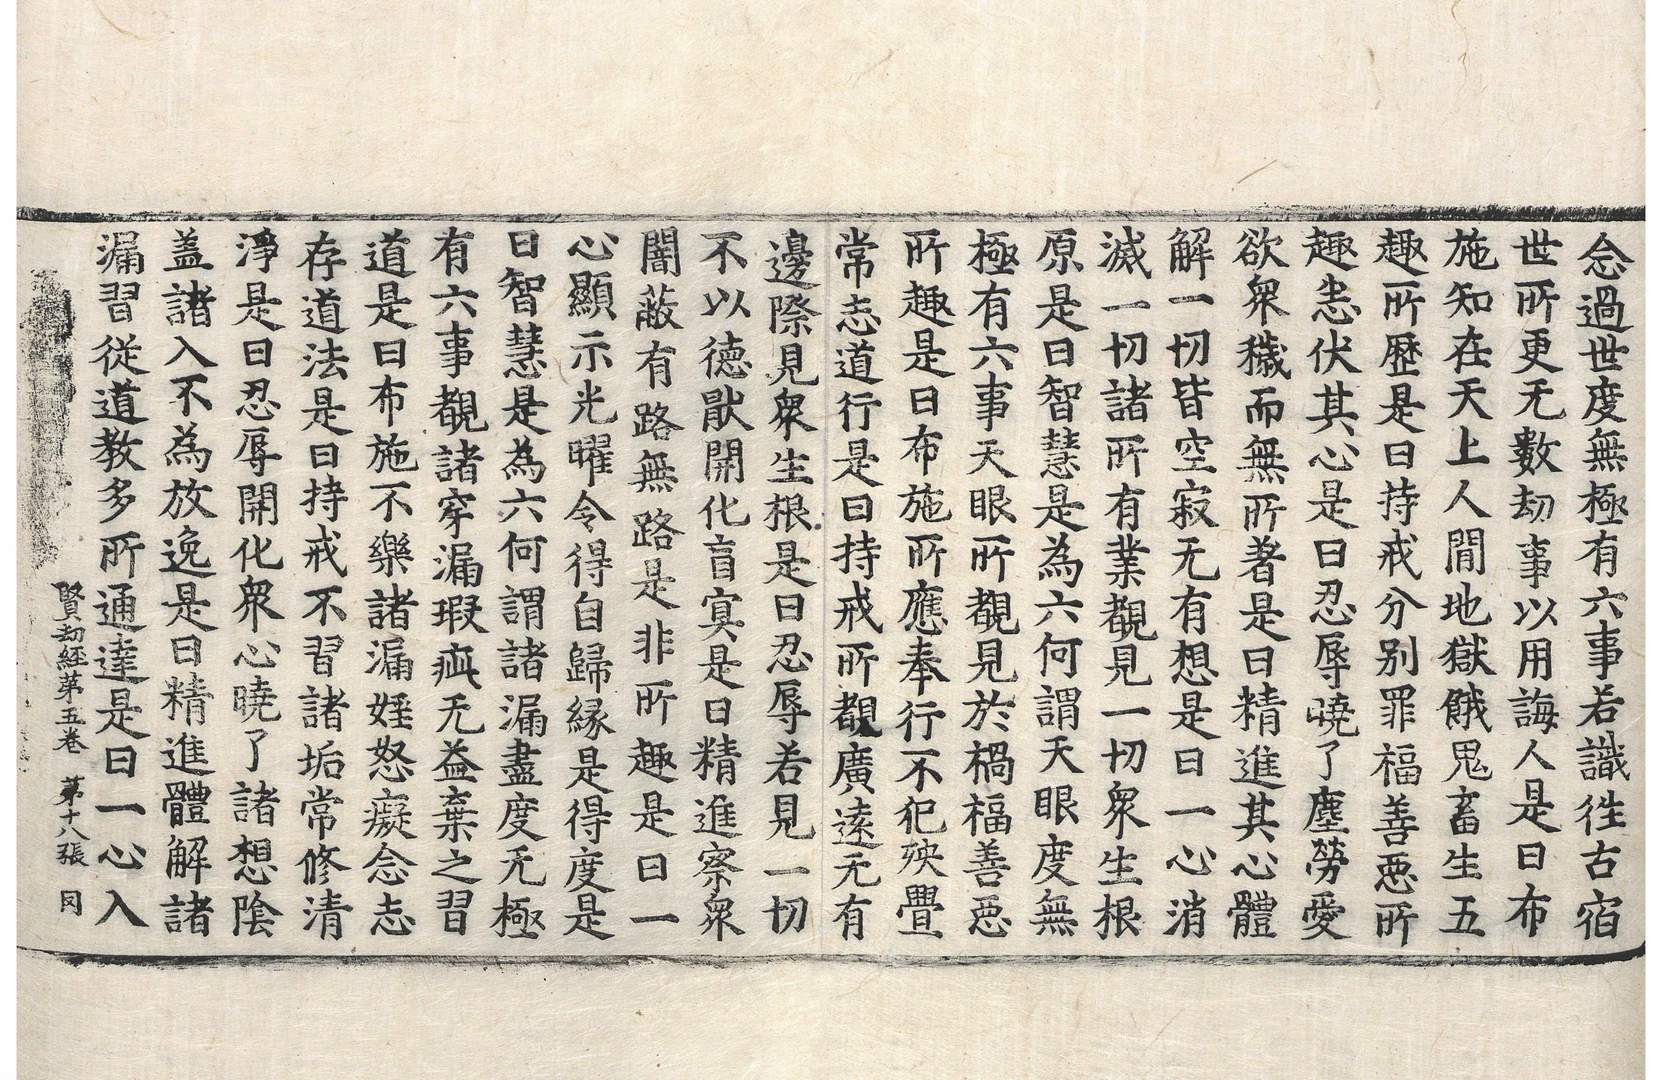 念過世度無極有六事若識徃古宿
世所更无數劫事以用誨人是曰布
施知在天上人間地獄餓鬼畜生五
趣所歷是曰持戒分别罪福善惡所
趣恚伏其心是曰忍辱曉了塵勞愛
欲衆穢而無所著是曰精進其心體
解一切皆空寂无有想是曰一心消
滅一切諸所有業覩見一切衆生根
原是曰智慧是為六何謂天眼度無
極有六事天眼所覩見於禍福善惡
所趣是曰布施所應奉行不犯殃舋
常志道行是曰持戒所覩廣遠无有
邊際見衆生根是曰忍辱若見一切
不以德猒開化盲冥是曰精進察衆
闇蔽有路無路是非所趣是曰一
心顯示光曜令得自歸緣是得度是
曰智慧是為六何謂諸漏盡度无極
有六事覩諸穿漏瑕疵无益棄之習
道是曰布施不樂諸漏婬怒癡念志
存道法是曰持戒不習諸垢常修清
淨是曰忍辱開化衆心曉了諸想陰
盖諸入不為放逸是曰精進體解諸
漏習從道教多所通達是曰一心入
賢劫經第五卷 第十八張 同